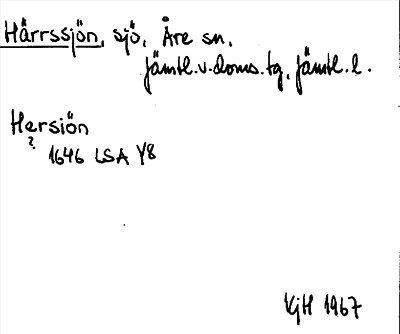 Härrssjön, sjö, Åre sn,
Jämtl. v. doms. tg, Jämtl. l.
Hersiön
?
1646 LSA Y8
KjH 1967